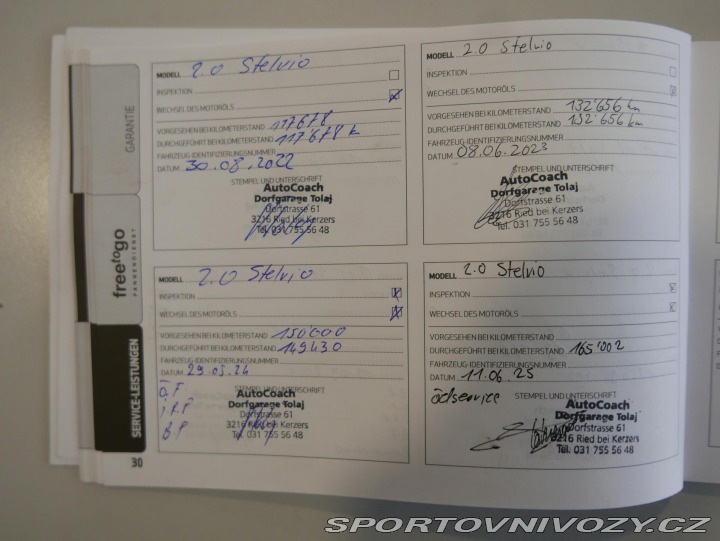 GARANTIE
freetogo
PANNENDIENST
SERVICE-LEISTUNGEN
MODELL 2.0 Stelvio
INSPEKTION
WECHSEL DES MOTORÖLS
VORGESEHEN BEI KILOMETERSTAND 117678
DURCHGEFÜHRT BEI KILOMETERSTAND 117'678 k
FAHRZEUG-IDENTIFIZIERUNGSNUMMER
DATUM 30.08.2022
STEMPEL UND UNTERSCHRIFT
AutoCoach
Dorfgarage Tolaj
Dorfstrasse 61
3216 Ried bei Kerzers
Tel. 031 755 56 48
MODELL 2.0 Stelvio
INSPEKTION
WECHSEL DES MOTORÖLS
VORGESEHEN BEI KILOMETERSTAND 132'656 km
DURCHGEFÜHRT BEI KILOMETERSTAND 132'656 km
FAHRZEUG-IDENTIFIZIERUNGSNUMMER
DATUM 08.06.2023
STEMPEL UND UNTERSCHRIFT
AutoCoach
Dorfgarage Tolaj
Dorfstrasse 61
3216 Ried bei Kerzers
Tel. 031 755 56 48
MODELL 2.0 Stelvio
INSPEKTION
WECHSEL DES MOTORÖLS
VORGESEHEN BEI KILOMETERSTAND 150'000
DURCHGEFÜHRT BEI KILOMETERSTAND 149430
FAHRZEUG-IDENTIFIZIERUNGSNUMMER
DATUM 29.05.24
STEMPEL UND UNTERSCHRIFT
Ö.F
I.R.F
B.P
AutoCoach
Dorfgarage Tolaj
Dorfstrasse 61
3216 Ried bei Kerzers
Tel. 031 755 56 48
MODELL 2.0 Stelvio
INSPEKTION
WECHSEL DES MOTORÖLS
VORGESEHEN BEI KILOMETERSTAND
DURCHGEFÜHRT BEI KILOMETERSTAND 165'002
FAHRZEUG-IDENTIFIZIERUNGSNUMMER
DATUM 11.06.25
Ölservice STEMPEL UND UNTERSCHRIFT
AutoCoach
Dorfgarage Tolaj
Dorfstrasse 61
3216 Ried bei Kerzers
Tel. 031 755 56 48
30
SPORTOVNIVOZY.CZ